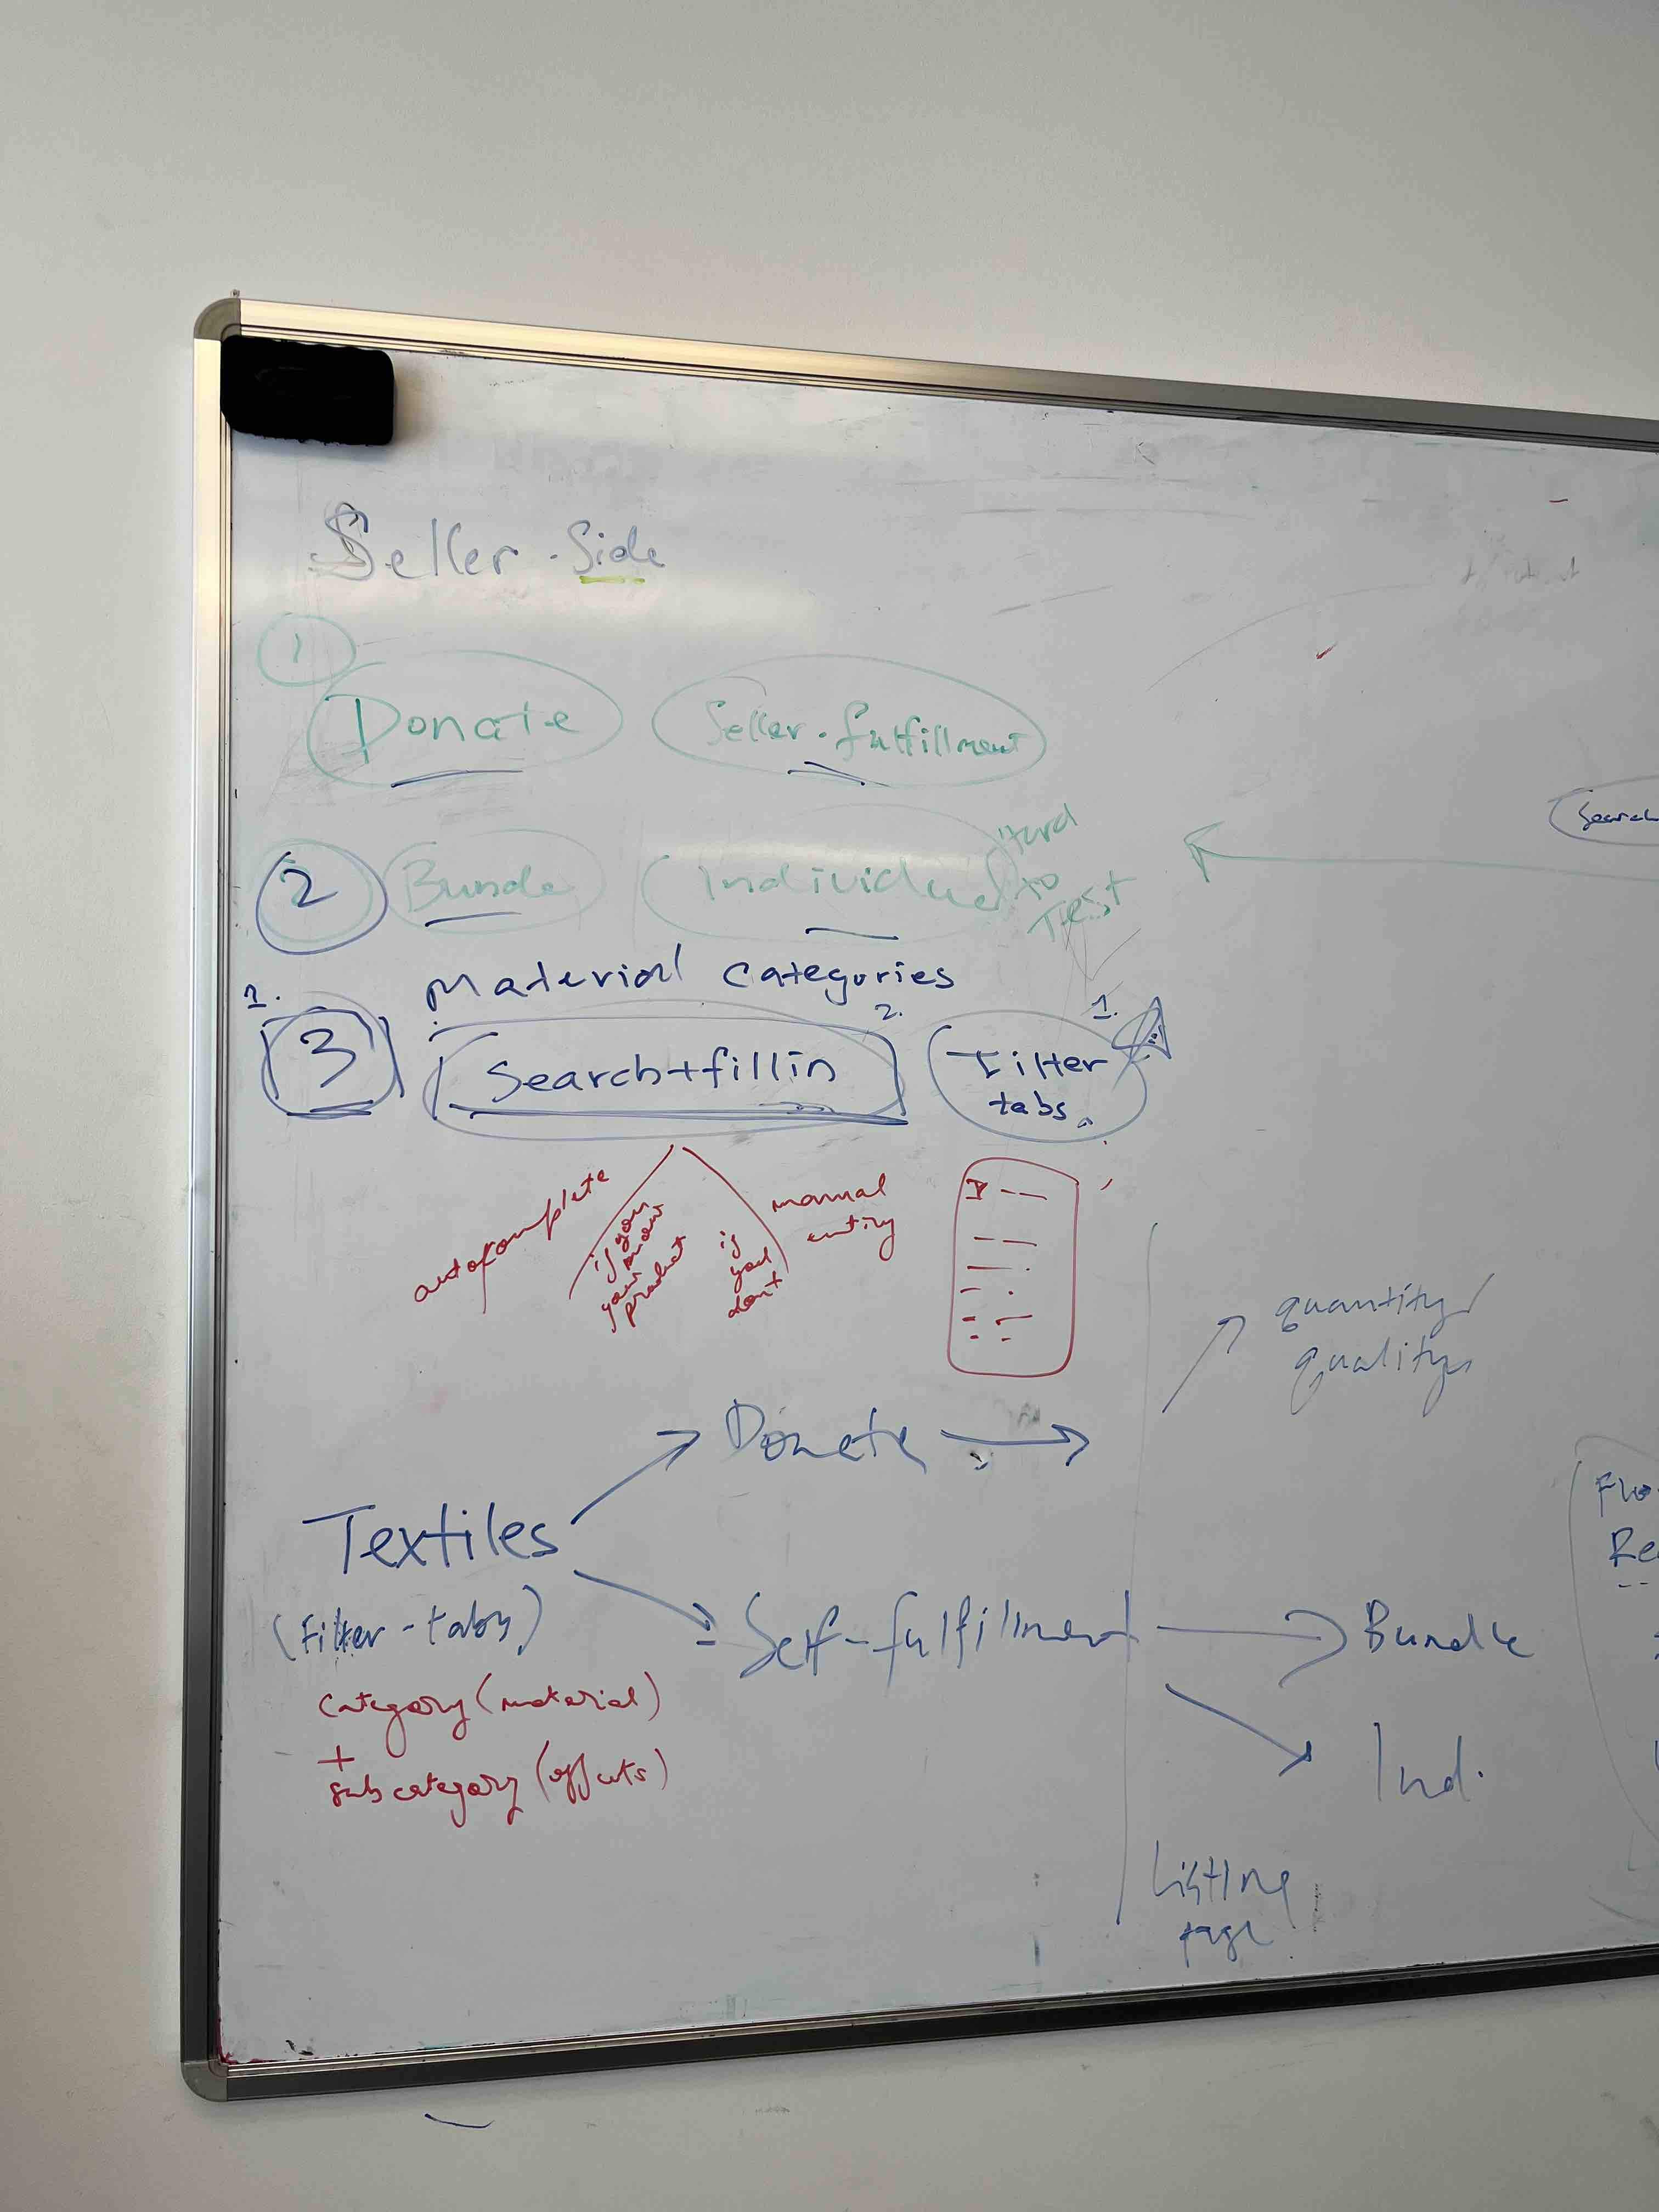 Seller-Side
1
Donate Seller-fulfillment
2 Bundle Individual Hard
to
Test
Material Categories
1. 2. 1.
3 Search+fillin Filter
tabs
autocomplete
if you
know
your
product
if
you
dont
manual
entry
quantity/
quality
Donate
Textiles
(Filter-tabs)
Self-fulfillment Bundle
category (material)
+
subcategory (offcuts)
Ind.
Listing
page
Search
Flo
Re